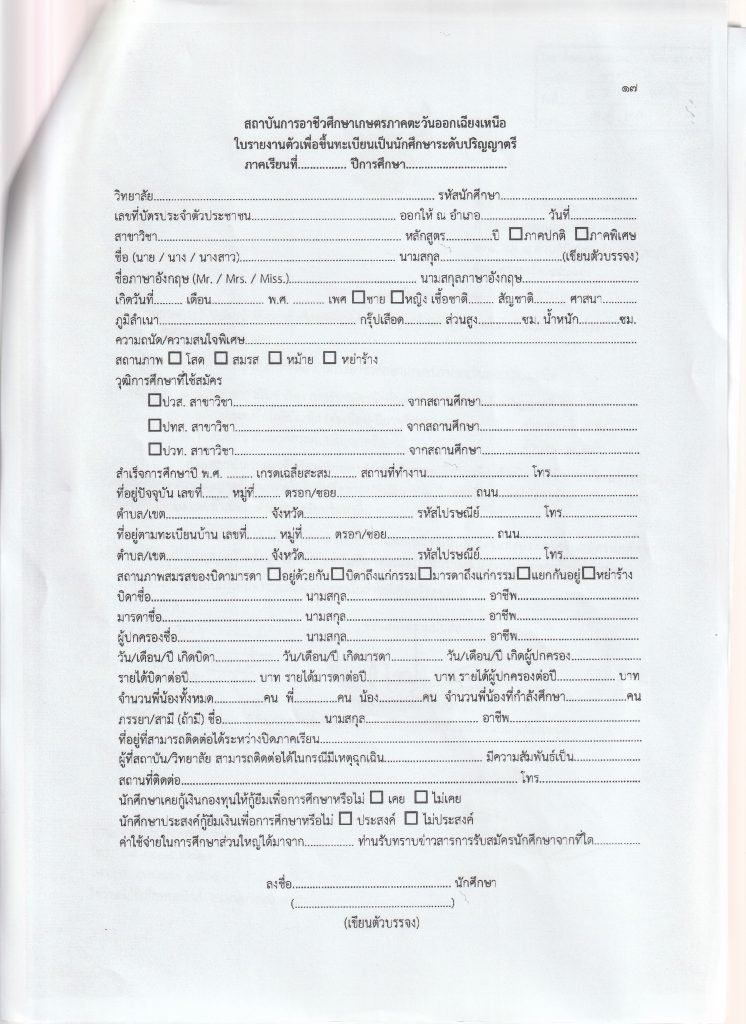 ๑๗
สถาบันการอาชีวศึกษาเกษตรภาคตะวันออกเฉียงเหนือ
ใบรายงานตัวเพื่อขึ้นทะเบียนเป็นนักศึกษาระดับปริญญาตรี
ภาคเรียนที่............... ปีการศึกษา..............................
วิทยาลัย.......................................................................................... รหัสนักศึกษา..........................................
เลขที่บัตรประจำตัวประชาชน............................................. ออกให้ ณ อำเภอ.................... วันที่.....................
สาขาวิชา............................................................................. หลักสูตร...............ปี ☐ภาคปกติ ☐ภาคพิเศษ
ชื่อ (นาย / นาง / นางสาว)................................................ นามสกุล.......................................(เขียนตัวบรรจง)
ชื่อภาษาอังกฤษ (Mr. / Mrs. / Miss.)........................................ นามสกุลภาษาอังกฤษ....................................
เกิดวันที่......... เดือน................ พ.ศ. .......... เพศ ☐ชาย ☐หญิง เชื้อชาติ........ สัญชาติ.......... ศาสนา...........
ภูมิลำเนา.............................................................. กรุ๊ปเลือด............ ส่วนสูง.............ซม. น้ำหนัก.............ซม.
ความถนัด/ความสนใจพิเศษ..............................................................................................................................
สถานภาพ ☐ โสด ☐ สมรส ☐ หม้าย ☐ หย่าร้าง
วุฒิการศึกษาที่ใช้สมัคร
☐ปวส. สาขาวิชา..................................................... จากสถานศึกษา................................................
☐ปทส. สาขาวิชา.................................................... จากสถานศึกษา................................................
☐ปวท. สาขาวิชา.................................................... จากสถานศึกษา................................................
สำเร็จการศึกษาปี พ.ศ. ........ เกรดเฉลี่ยสะสม........ สถานที่ทำงาน................................ โทร...........................
ที่อยู่ปัจจุบัน เลขที่........ หมู่ที่........ ตรอก/ซอย.......................................... ถนน...........................................
ตำบล/เขต............................... จังหวัด................................... รหัสไปรษณีย์................... โทร.......................
ที่อยู่ตามทะเบียนบ้าน เลขที่......... หมู่ที่........ ตรอก/ซอย.................................. ถนน.....................................
ตำบล/เขต............................... จังหวัด................................... รหัสไปรษณีย์................... โทร.......................
สถานภาพสมรสของบิดามารดา ☐อยู่ด้วยกัน☐บิดาถึงแก่กรรม☐มารดาถึงแก่กรรม☐แยกกันอยู่☐หย่าร้าง
บิดาชื่อ................................................ นามสกุล............................................ อาชีพ......................................
มารดาชื่อ............................................. นามสกุล............................................ อาชีพ......................................
ผู้ปกครองชื่อ....................................... นามสกุล............................................ อาชีพ......................................
วัน/เดือน/ปี เกิดบิดา.................... วัน/เดือน/ปี เกิดมารดา................ วัน/เดือน/ปี เกิดผู้ปกครอง......................
รายได้บิดาต่อปี..................... บาท รายได้มารดาต่อปี.................... บาท รายได้ผู้ปกครองต่อปี................. บาท
จำนวนพี่น้องทั้งหมด...............คน พี่.............คน น้อง.............คน จำนวนพี่น้องที่กำลังศึกษา...................คน
ภรรยา/สามี (ถ้ามี) ชื่อ.............................. นามสกุล................................... อาชีพ........................................
ที่อยู่ที่สามารถติดต่อได้ระหว่างปิดภาคเรียน.....................................................................................................
ผู้ที่สถาบัน/วิทยาลัย สามารถติดต่อได้ในกรณีมีเหตุฉุกเฉิน.............................. มีความสัมพันธ์เป็น....................
สถานที่ติดต่อ.............................................................................................................. โทร..............................
นักศึกษาเคยกู้เงินกองทุนให้กู้ยืมเพื่อการศึกษาหรือไม่ ☐ เคย ☐ ไม่เคย
นักศึกษาประสงค์กู้ยืมเงินเพื่อการศึกษาหรือไม่ ☐ ประสงค์ ☐ ไม่ประสงค์
ค่าใช้จ่ายในการศึกษาส่วนใหญ่ได้มาจาก............... ท่านรับทราบข่าวสารการรับสมัครนักศึกษาจากที่ใด..............
ลงชื่อ.................................................. นักศึกษา
(..................................................)
(เขียนตัวบรรจง)